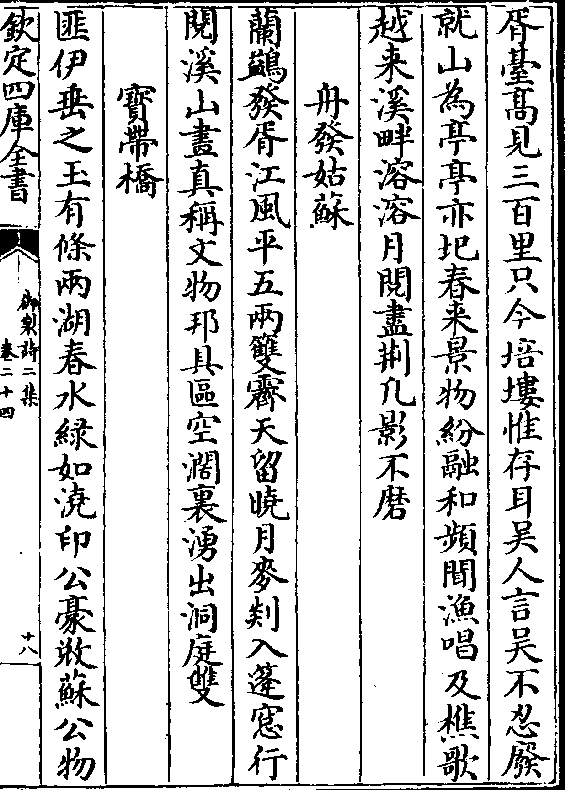 胥臺髙見三百里只今培塿惟存耳吳人言吳不忍廢
就山為亭亭亦圮春来景物紛融和頻聞漁唱及樵歌
越来溪畔溶溶月閱盡荆凡影不磨
舟發姑蘇
蘭鷁發胥江風平五兩雙霽天留曉月麥剡入蓬窓行
閱溪山盡真稱文物邦具區空濶裏湧出洞庭雙
寳帶橋
匪伊垂之玉有條兩湖春水緑如澆印公豪敚蘇公物
欽定四庫全書
御製詩二集
卷二十四
十八